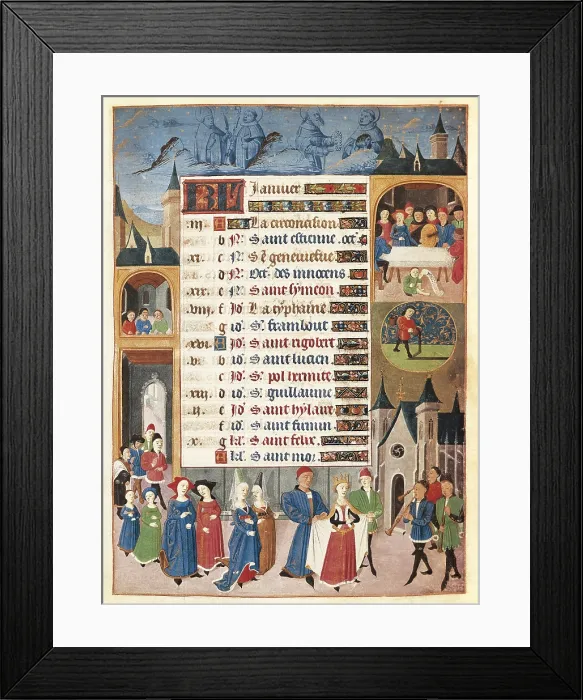 KL Janvier
.iii. A La circoncision
b N. Saint estienne. oct.
.xi. c N. S.e geneviefve
d N. Oct. des innocens
.xix. e N. Saint symeon
.viii. f Id La typhaine
g id S. frambout
.xvi. A Id Saint rigobert
.v. b id Saint lucien
c Id S. pol hermite
.xiii. d id S. guillaume
.ii. e Id Saint hylaire
f id Saint firmin
.x. g kl. Saint felix
A kl. Saint mor